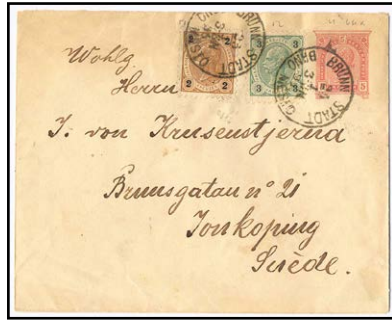 2 2
3 3
5
BRÜNN STADT
BRNO MĚSTO
Wohlg.
Herrn
J. von Krusenstjerna
Brunnsgatan nº 21
Jonkoping
Suède.